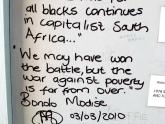 all blacks continues
in capitalist South
Africa..."
"We may have won
the battle, but the
war against poverty
is far from over."
Bondo Modise
03/03/2010